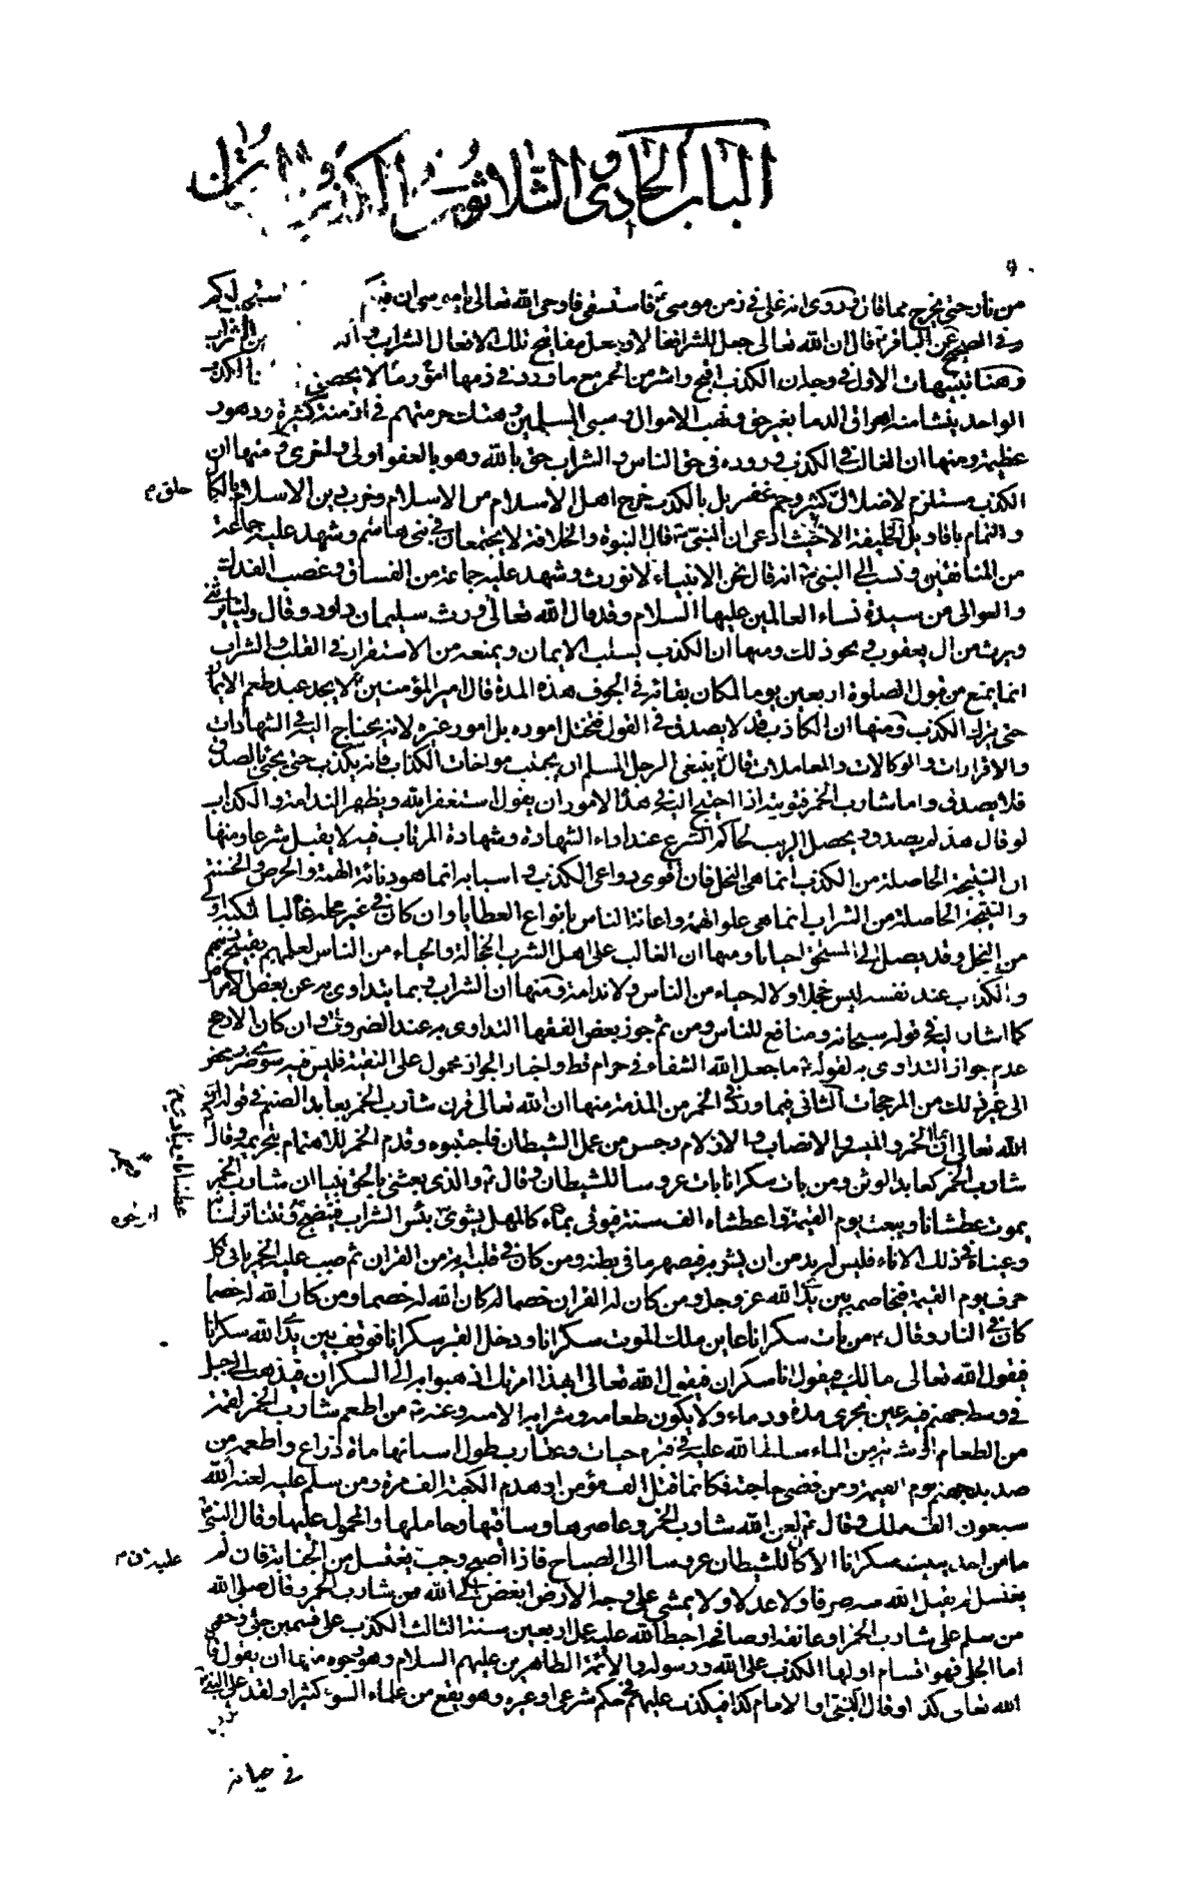 الباب الحادی والثلاثون الكذب
من نار حتى يخرج مما قال وروى انه غلى فى زمن موسى فاستسقى فاوحى الله تعالى ان فيكم
وفى الصحيح عن الباقر قال ان الله تعالى جعل للشر اقفالا وجعل مفاتيح تلك الاقفال الشراب
وهنا تنبيهات الاول فى وجه ان الكذب اقبح واشر من الخمر مع ما ورد فى ذمها امور منها لا يحصى
الواحد ينشا منه اهراق الدما بغير حق ونهب الاموال وسبى المسلمين وهتك حرمتهم فى ازمنة كثيرة ودهور
عظيمة ومنها ان الغالب فى الكذب وروده فى حق الناس والشراب حق بالله وهو بالعفو اولى واحرى ومنها ان
الكذب مستلزم لاضلال كثير وجم غفير بل بالكذب خرج اهل الاسلام من الاسلام وخرب دين الاسلام
خلق م
والتمام باقاويل الخليفة الاخبث ادعى ان النبى قال النبوة والخلافة لا يجتمعان فى بنى هاشم وشهد عليه جماعة
من المنافقين ونسب الى النبى انه قال نحن الانبياء لا نورث وشهد عليه جماعة من الفساق وغصب الفدك
والعوالى من سيدة نساء العالمين عليها السلام وقد قال الله تعالى وورث سليمان داود وقال وليا يرثنى
ويرث من ال يعقوب ونحو ذلك ومنها ان الكذب يسلب الايمان ويمنعه من الاستقرار فى القلب والشراب
انما يمنع من قبول الصلوة اربعين يوما لمكان بقائه فى الجوف هذه المدة قال امير المؤمنين لا يجد عبد طعم الايمان
حتى يترك الكذب ومنها ان الكاذب قد لا يصدق فى القول فيختل اموره بل امور غيره لانه يحتاج اليه فى الشهادات
والاقرارات والوكالات والمعاملات قال ينبغى الرجل المسلم ان يجتنب مواخات الكذاب فانه يكذب حتى يجئ بالصدق
فلا يصدق واما شارب الخمر فتوبته اذا احتيج اليه فى هذا الامور ان يقول استغفر الله ويظهر الندامة والكذاب
لو قال هذا لم يصدق ويحصل الريب لحاكم الشرع عند اداء الشهادة وشهادة المرتاب فيه لا يقبل شرعا ومنها
ان النتيجة الحاصلة من الكذب انما هى البخل فان اقوى دواعى الكذب واسبابه انما هو دنائة الهمة والحرص والخسة
والنتيجة الحاصلة من الشراب انما هى علو الهمة واعانة الناس بانواع العطايا وان كان فى غير محله غالبا
من البخل وقد يصل الى المستحق احيانا ومنها ان الغالب على اهل الشرب الخجالة والحياء من الناس لعلمهم بقبح
والكذاب عند نفسه ليس خجلا ولا له حياء من الناس ولا ندامة ومنها ان الشراب ربما يتداوى به عن بعض الامراض
كما اشار اليه فى قوله سبحانه ومنافع للناس ومن ثم جوز بعض الفقها التداوى به عند الضرورة وان كان الارجح
عدم جواز التداوى به لقوله ما جعل الله الشفاء فى حرام قط واخبار الجواز محمول على التقية فليس فيه سوى ضرر محض
الى غير ذلك من المرجحات الثانى فيما ورد فى الخمر من المذمة منها ان الله تعالى قرن شارب الخمر بعابد الصنم فى قوله
الله تعالى انما الخمر والميسر والانصاب والازلام رجس من عمل الشيطان فاجتنبوه وقدم الخمر للاهتمام بتحريمه وقال
شارب الخمر كعابد الوثن ومن بات سكرانا بات عروسا للشيطان وقال والذى بعثنى بالحق نبيا ان شارب الخمر
يموت عطشانا ويبعث يوم القيمة واعطشاه الف سنة فيؤتى بماء كالمهل يشوى بئس الشراب فينضج
وعيناه فى ذلك الاناء فليس له بد من ان يشربه فيصهر ما فى بطنه ومن كان فى قلبه اية من القران ثم صب عليه الخمر ياتى كل
حرف يوم القيمة فيخاصمه بين يدى الله عز وجل ومن كان له القران خصما كان الله له خصما ومن كان الله له خصما
كان فى النار وقال من بات سكرانا عاين ملك الموت سكرانا ودخل القبر سكرانا فوقف بين يدى الله سكرانا
فيقول الله تعالى مالك فيقول انا سكران فيقول الله تعالى ابهذا امرتك اذهبوا به الى السكران فيذهب الى جبل
فى وسط جهنم فيه عين تجرى مدة ودماء ولا يكون طعامه وشرابه الا منه وعنه من اطعم شارب الخمر لقمة
من الطعام او شربة من الماء سلط الله عليه فى قبره حيات وعقارب طول اسنانها ماة ذراع واطعمه من
صديد جهنم يوم القيمة ومن قضى حاجته فكانما قتل الف مؤمن او هدم الكعبة الف مرة ومن سلم عليه لعنه الله
سبعون الف ملك وقال لعن الله شارب الخمر وعاصرها وساقيها وحاملها والمحمول عليها وقال النبى
ما من احد يبيت سكرانا الا كان للشيطان عروسا الى الصباح فاذا اصبح وجب يغتسل من الجنابة فان لم
يغتسل لم يقبل الله منه صرفا ولا عدلا ولا يمشى على وجه الارض ابغض الى الله من شارب الخمر وقال صلى الله
من سلم على شارب الخمر او عانقه او صافحه احبط الله عليه عمل اربعين سنة الثالث الكذب على قسمين جلى وخفى
اما الجلى فهو اقسام اولها الكذب على الله ورسوله والائمة الطاهرين عليهم السلام وهو نحوه منها ان يقول قال
الله تعالى كذا او قال النبى او الامام كذا فيكذب عليهم فى حكم شرعى او غيره وهو يقع من علماء السوء كثيرا ولقد على النبى
فى حياته